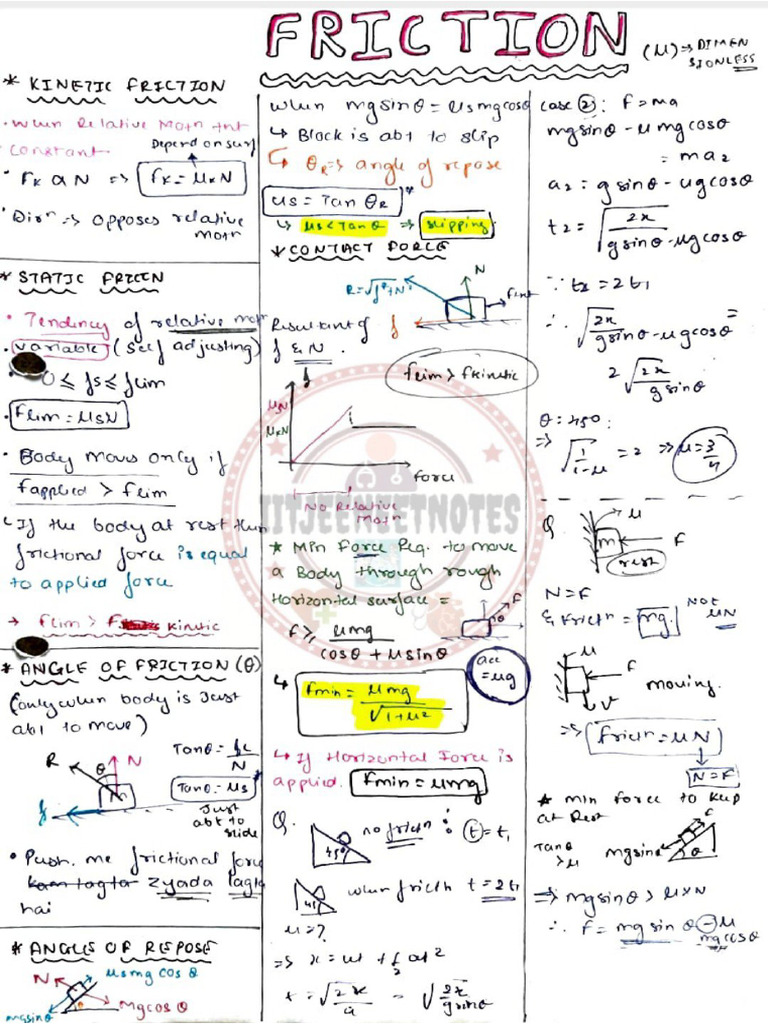 FRICTION
(μ) ⇒ DIMEN
SIONLESS
* KINETIC FRICTION
• When Relative Motn
constant.
Depend on surf
• Fk α N ⇒ fk = μkN
• Dirⁿ ⇒ opposes relative
motn
* STATIC FRICTN
• Tendency of relative motn
• variable (self adjusting)
• 0 ≤ fs ≤ flim
• Flim = μsN
• Body moves only if
fapplied > flim
↳ If the body at rest then
frictional force is equal
to applied force
→ flim > F kinetic
* ANGLE OF FRICTION (θ)
(only when body is Just
abt to move)
R θ N
m
f
Tanθ = fL/N
Tanθ = μs
Just
abt to
slide
• Push. me frictional force
kam lagta zyada lagta
hai
* ANGLE OF REPOSE
N μsmg cos θ
mgsinθ θ Mgcos θ
when mgsinθ = μsmgcosθ
↳ Block is abt to slip
↳ θR ⇒ angle of repose
us = Tan θR *
↳ μs < Tanθ ⇒ slipping
* CONTACT FORCE
R = √f²+N² N Fext
f
Resultant of
f & N.
flim > fkinetic
f
μsN
μkN
force
No Relative
Motn
* Min Force Req. to move
a Body through rough
Horizontal surface =
F
θ
F ≥ μmg / cosθ + μsinθ
acc
= μg
↳ Fmin = μmg / √1+μ²
↳ If Horizontal Force is
applied. Fmin = μmg
Q. 45° no fricⁿ : t = t1
45 when fricth t = 2t1
μ = ?
⇒ x = ut + 1/2 at²
t = √2x/a = √2x/gsinθ
case ②: F = ma
mgsinθ - μmgcosθ
= ma2
a2 = gsinθ - ugcosθ
t2 = √2x / gsinθ - μgcosθ
∵ t2 = 2t1
∴ √2x / gsinθ - μgcosθ =
2√2x / gsinθ
θ = 450:
⇒ √1/1-μ = 2 ⇒ μ = 3/4
Q. μ
m F
rest
N = F
& Fricth = mg. Not
μN
μ
F moving.
v
⇒ fricth = μN
N = F
* min force to keep
at Rest
Tanθ
> μ
mgsinθ F θ
⇒ mgsinθ > μ×N
∴ F = mg sin θ - μ
mg cosθ
IITJEENEETNOTES